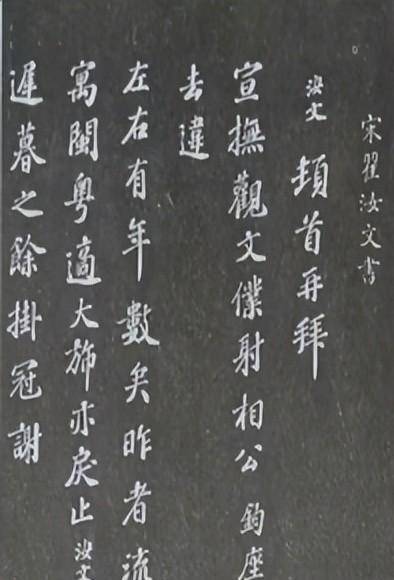 宋翟汝文書
汝文 頓首再拜
宣撫觀文僕射相公 鈞座
去違
左右有年數矣昨者流
寓閩粵適大斾亦戾止汝文
遲暮之餘掛冠謝